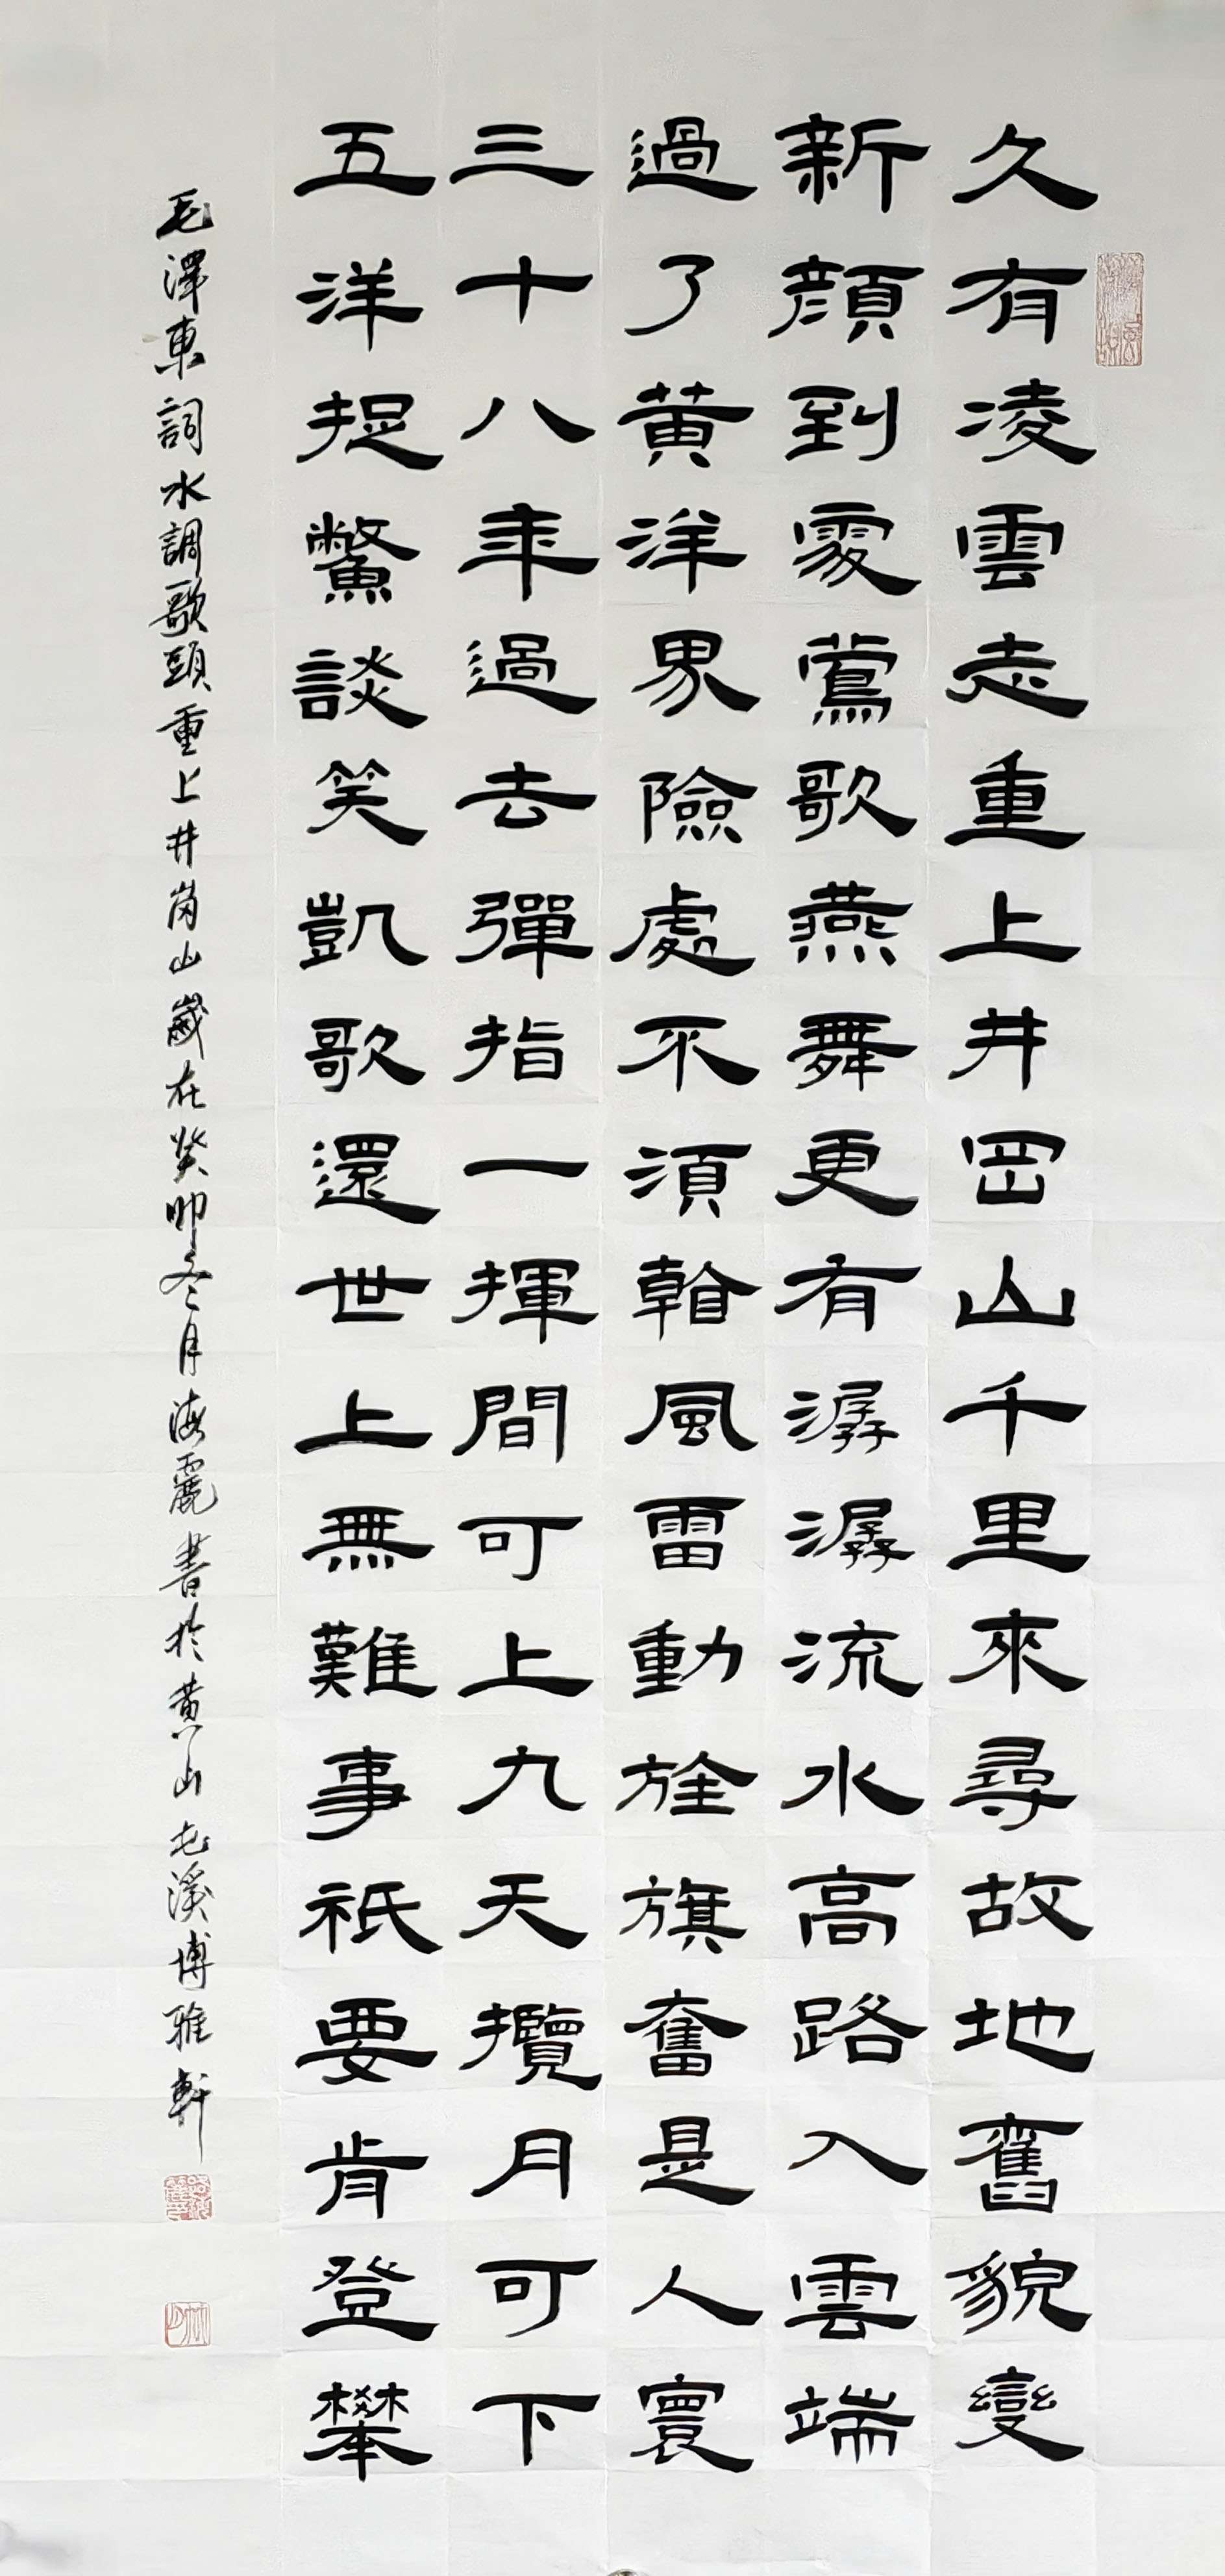 久有凌雲志重上井岡山千里來尋故地舊貌變
新顔到處鶯歌燕舞更有潺潺流水髙路入雲端
過了黄洋界險處不須看風雷動旌旗奮是人寰
三十八年過去彈指一揮間可上九天攬月可下
五洋捉鱉談笑凱歌還世上無難事衹要肯登攀
毛澤東詞水調歌頭重上井崗山歲在癸卯冬月海麗書於黄山屯溪博雅軒